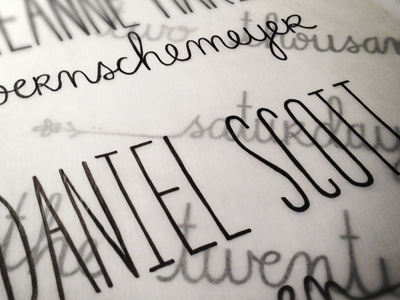 EANNE MAR
two thousan
oeRnschemeyeR
saturday
DANIEL SCOTT
the twent